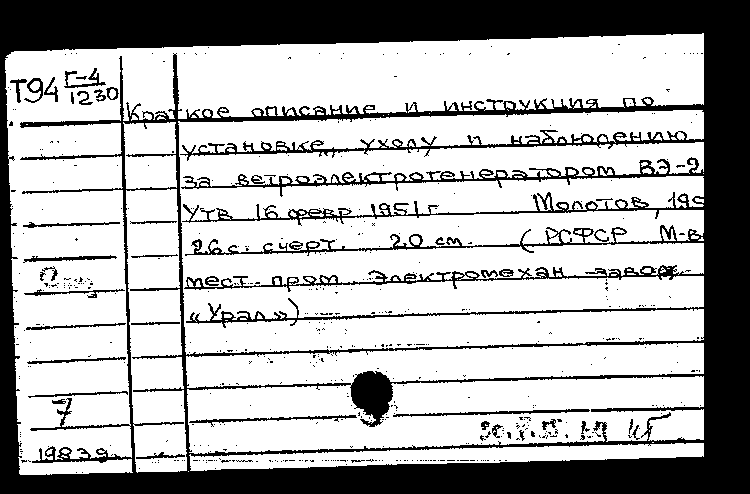 Т94 Г-4
1230
Краткое описание и инструкция по
установке, уходу и наблюдению
за ветроэлектрогенератором ВЭ-2
Утв 16 февр 1951 г Молотов, 195
26 с. с черт. 20 см. (РСФСР М-во
мест. пром Электромехан завод
«Урал»)
7
19839